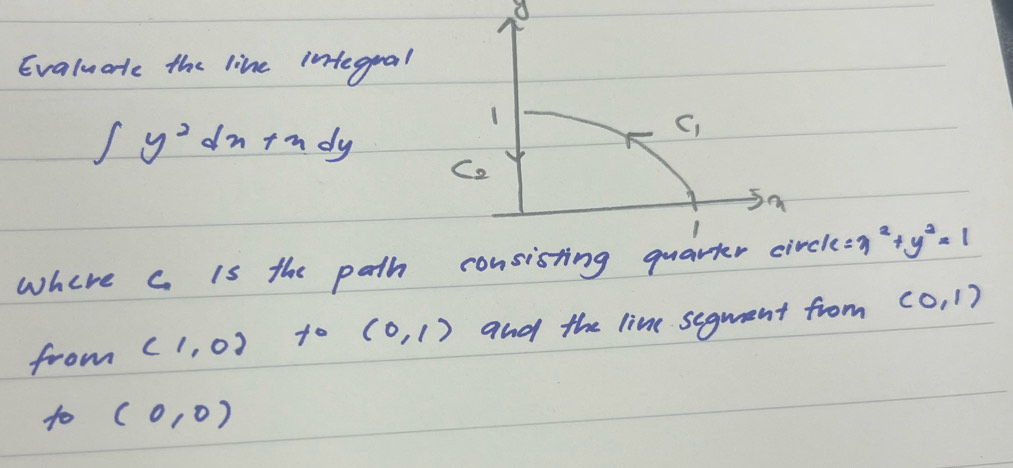 Evaluate the line integral
∫ y² dx + x dy
y
1
C₁
C₂
x
1
where C is the path consisting quarter circle = x² + y² = 1
from (1,0) to (0,1) and the line segment from (0,1)
to (0,0)